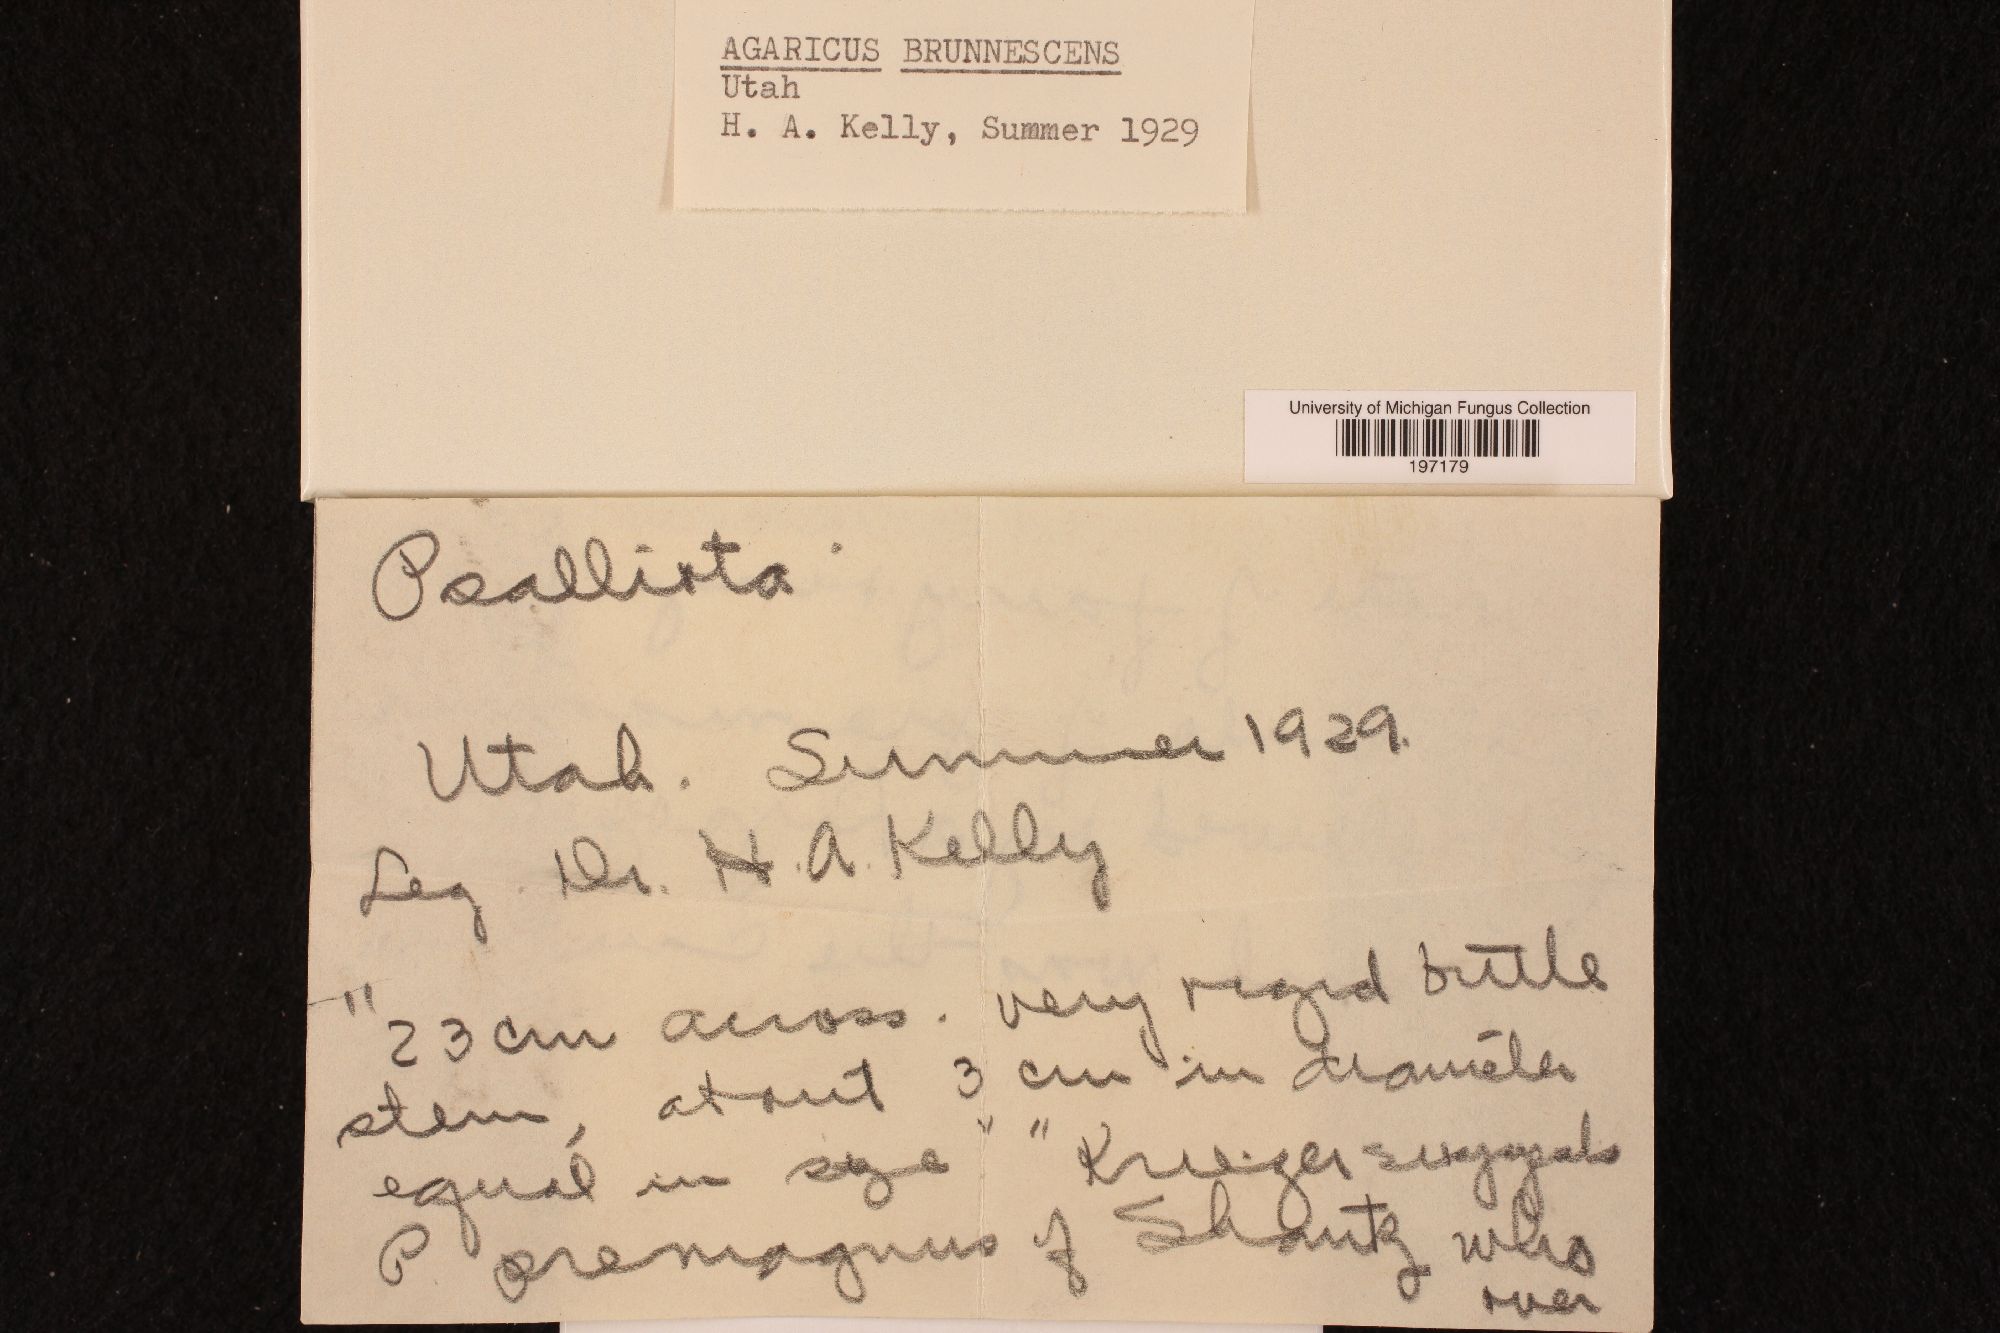 AGARICUS BRUNNESCENS
Utah
H. A. Kelly, Summer 1929
University of Michigan Fungus Collection
197179
Psalliota
Utah. Summer 1929.
Leg. Dr. H. A. Kelly
"23 cm across. very rigid brittle
stem, about 3 cm in diameter
equal in size" " Krieger suggests
P premagnus of Shantz who
over